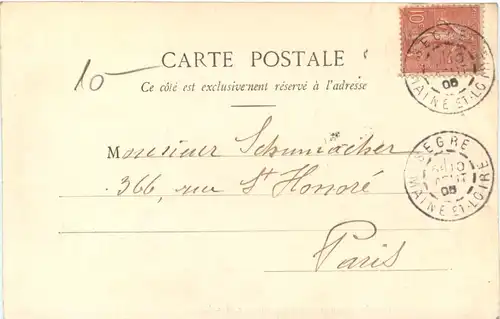 10
CARTE POSTALE
Ce côté est exclusivement réservé à l'adresse
Monsieur Schumacher
366, rue St Honoré
Paris
SEGRÉ
05
MAINE-ET-LOIRE
SEGRÉ
05
MAINE-ET-LOIRE